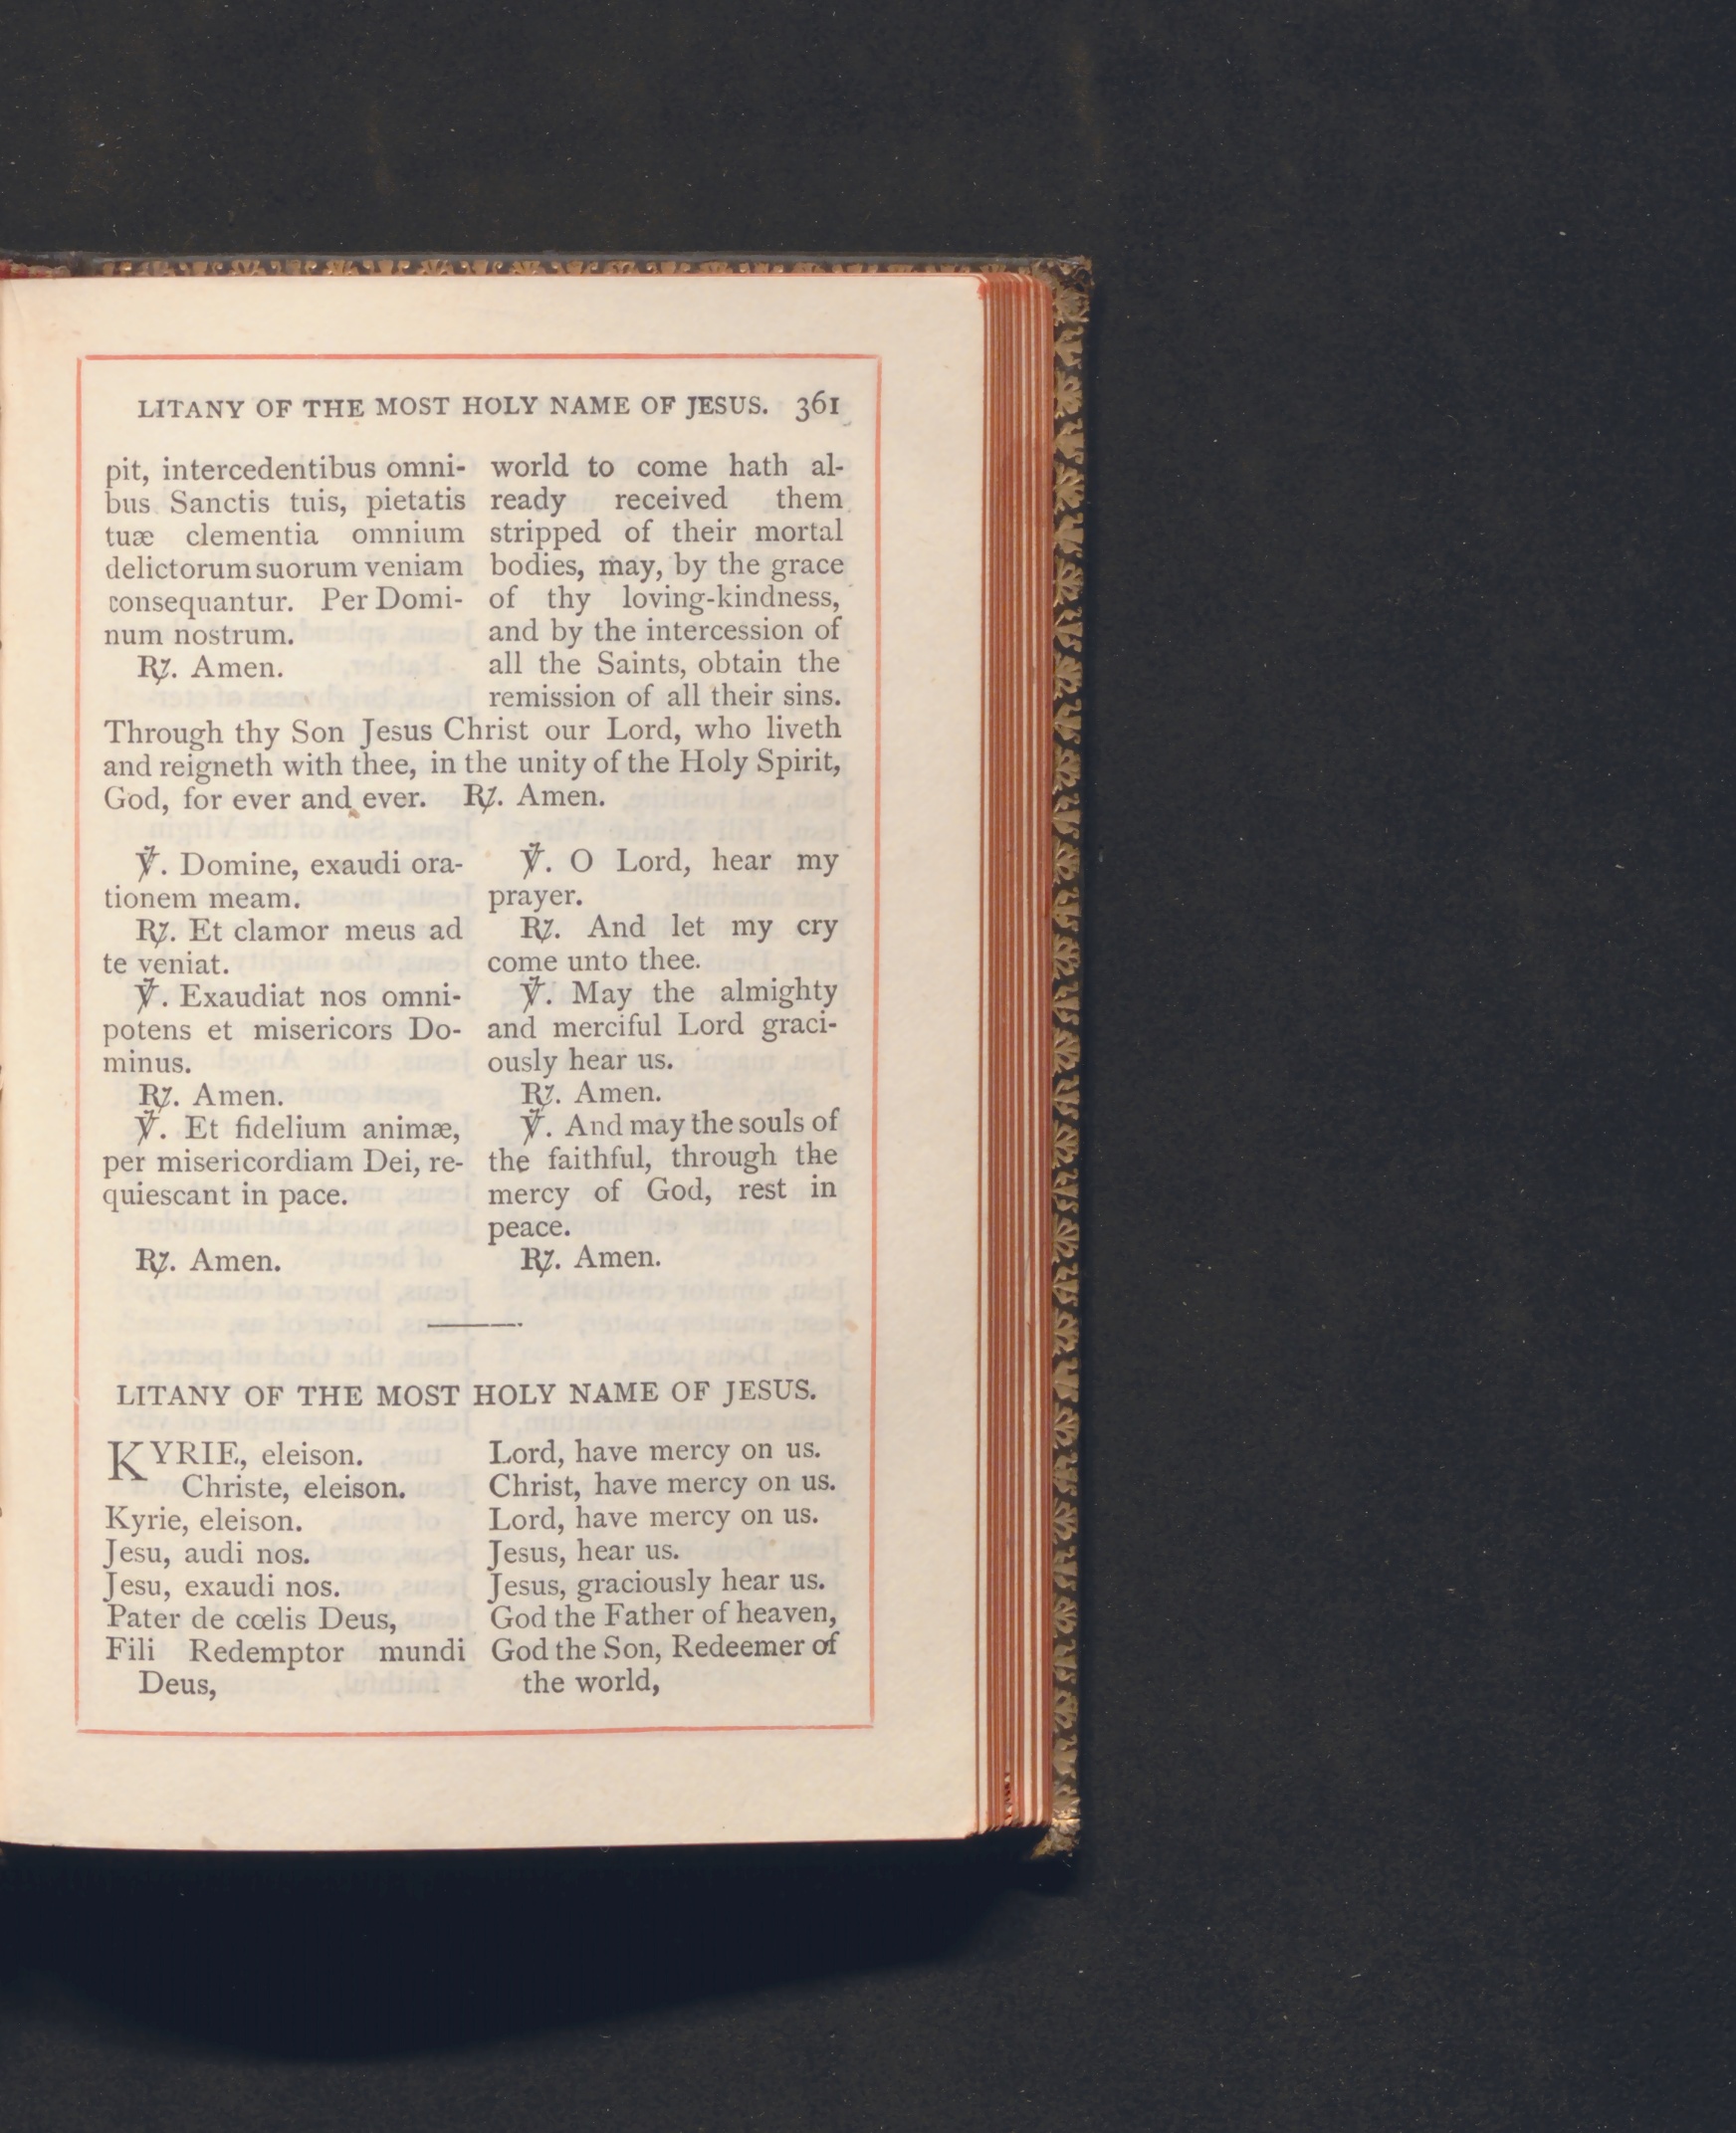 LITANY OF THE MOST HOLY NAME OF JESUS. 361
pit, intercedentibus omni-
bus Sanctis tuis, pietatis
tuæ clementia omnium
delictorum suorum veniam
consequantur. Per Domi-
num nostrum.
℟. Amen.
world to come hath al-
ready received them
stripped of their mortal
bodies, may, by the grace
of thy loving-kindness,
and by the intercession of
all the Saints, obtain the
remission of all their sins.
Through thy Son Jesus Christ our Lord, who liveth
and reigneth with thee, in the unity of the Holy Spirit,
God, for ever and ever. ℟. Amen.
℣. Domine, exaudi ora-
tionem meam.
℟. Et clamor meus ad
te veniat.
℣. Exaudiat nos omni-
potens et misericors Do-
minus.
℟. Amen.
℣. Et fidelium animæ,
per misericordiam Dei, re-
quiescant in pace.
℟. Amen.
℣. O Lord, hear my
prayer.
℟. And let my cry
come unto thee.
℣. May the almighty
and merciful Lord graci-
ously hear us.
℟. Amen.
℣. And may the souls of
the faithful, through the
mercy of God, rest in
peace.
℟. Amen.
LITANY OF THE MOST HOLY NAME OF JESUS.
KYRIE, eleison.
Christe, eleison.
Kyrie, eleison.
Jesu, audi nos.
Jesu, exaudi nos.
Pater de cœlis Deus,
Fili Redemptor mundi
Deus,
Lord, have mercy on us.
Christ, have mercy on us.
Lord, have mercy on us.
Jesus, hear us.
Jesus, graciously hear us.
God the Father of heaven,
God the Son, Redeemer of
the world,